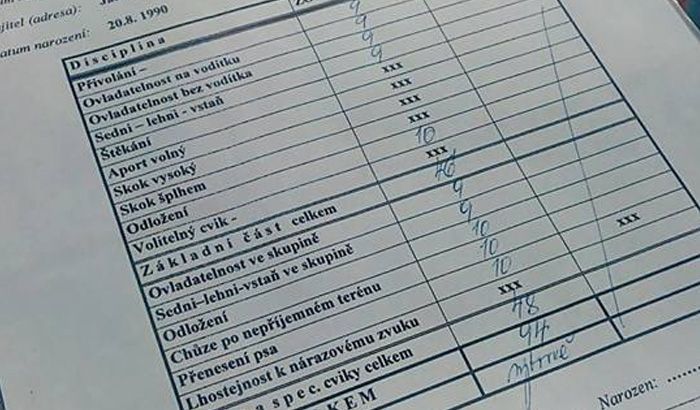 jitel (adresa):
atum narození: 20.8. 1990
Disciplina
Přivolání – 9
Ovladatelnost na vodítku 9
Ovladatelnost bez vodítka 9
Sedni – lehni - vstaň 9
Štěkání xxx
Aport volný xxx
Skok vysoký xxx
Skok šplhem xxx
Odložení 10
Volitelný cvik - xxx
Základní část celkem 46
Ovladatelnost ve skupině 9
Sedni–lehni-vstaň ve skupině 9
Odložení 10
Chůze po nepříjemném terénu 10
Přenesení psa 10
Lhostejnost k nárazovému zvuku xxx xxx
a spec. cviky celkem 48
KEM 94
výborně
Narozen: ........